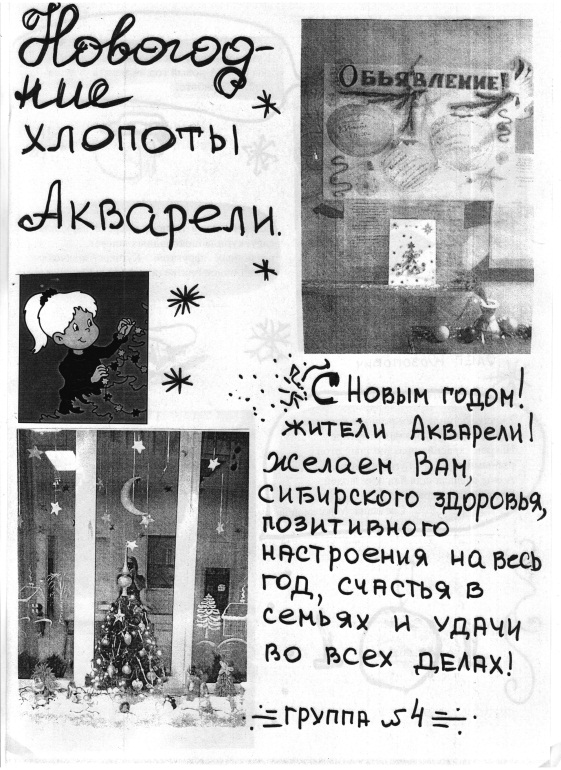 Новогод-
ние
хлопоты
Акварели.
Обьявление!
С Новым годом!
жители Акварели!
Желаем Вам,
сибирского здоровья,
позитивного
настроения на весь
год, счастья в
семьях и удачи
во всех делах!
группа №4